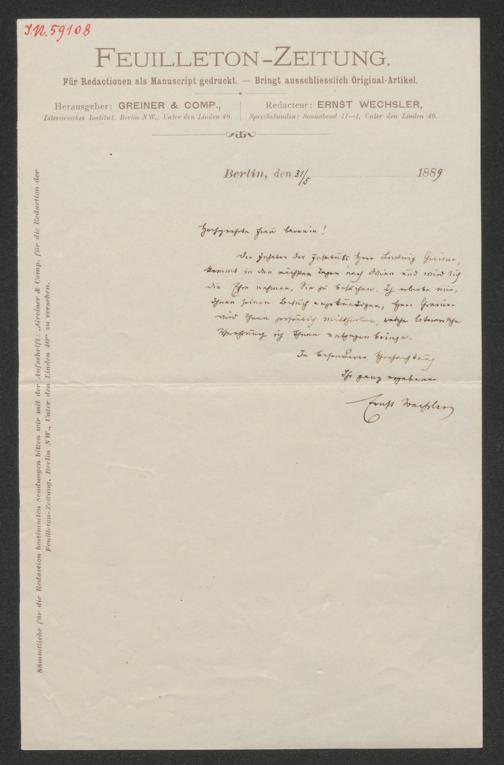 J.N. 59108
FEUILLETON-ZEITUNG.
Für Redactionen als Manuscript gedruckt. — Bringt ausschliesslich Original-Artikel.
Herausgeber: GREINER & COMP.,
Literarisches Institut. Berlin NW., Unter den Linden 40.
Redacteur: ERNST WECHSLER,
Sprechstunden: Sonnabend 11—1, Unter den Linden 40.
Berlin, den 31/5 1889
Hochgeehrte Frau Baronin!
Der Inhaber des Instituts Herr Ludwig Greiner,
kommt in den nächsten Tagen nach Wien und wird sich
die Ehre nehmen, Sie zu besuchen. Ich erlaube mir,
Ihnen seinen Besuch anzukündigen, Herr Greiner
wird Ihnen persönlich mittheilen, welche literarische
Verehrung ich Ihnen entgegen bringe.
In besonderer Hochachtung
Ihr ganz ergebener
Ernst Wechsler
Sämmtliche für die Redaction bestimmten Sendungen bitten wir mit der Aufschrift: „Greiner & Comp. für die Redaction der
Feuilleton-Zeitung, Berlin NW., Unter den Linden 40“ zu versehen.